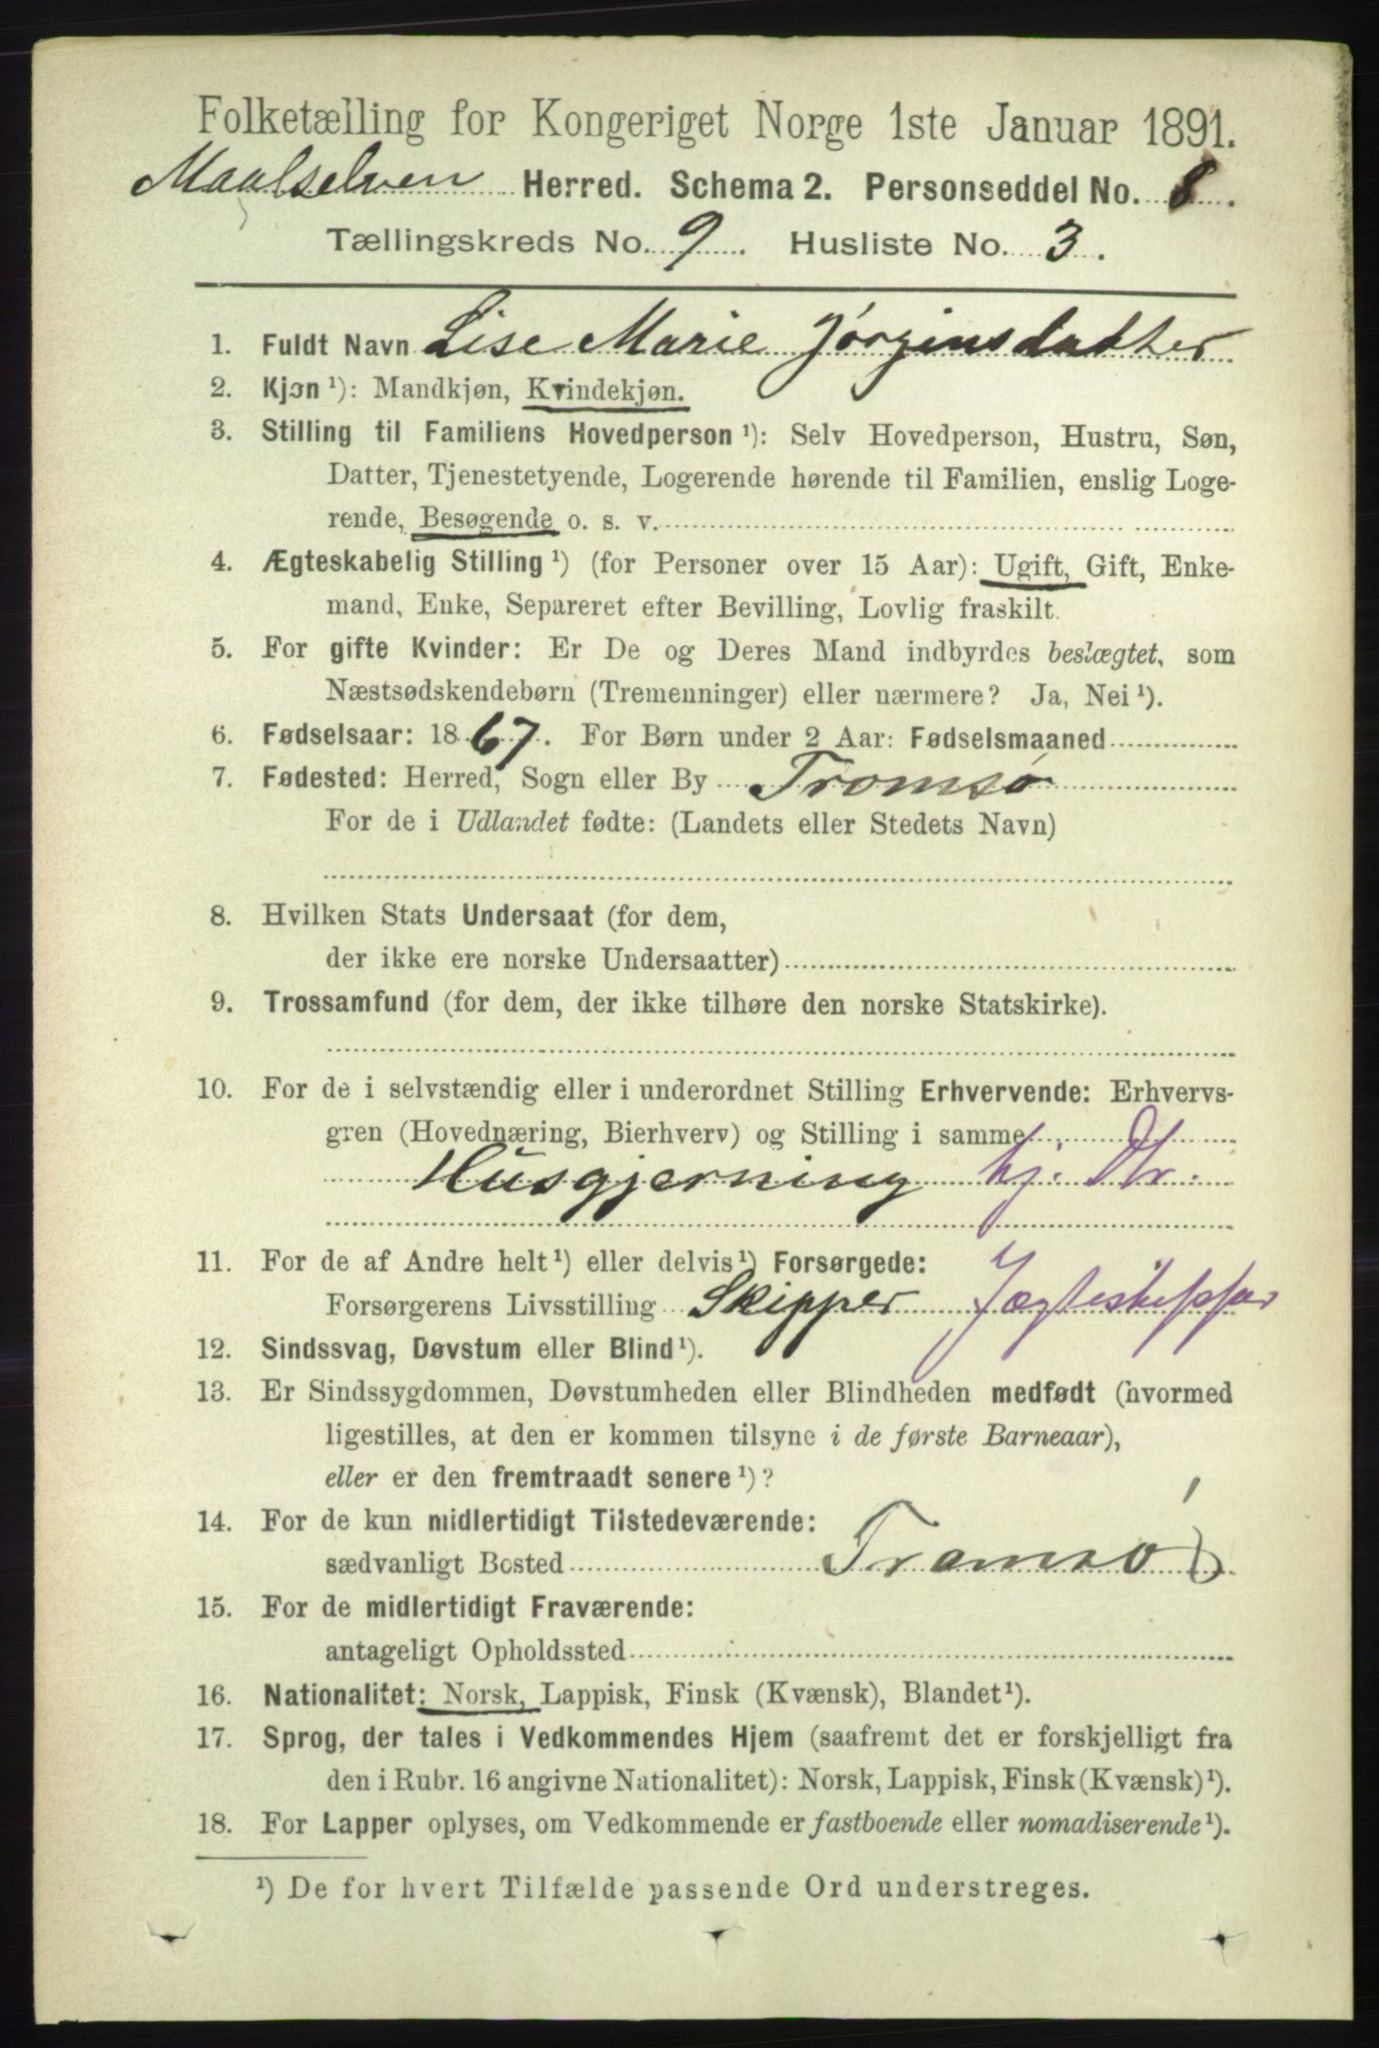 Folketælling for Kongeriget Norge 1ste Januar 1891.
Maalselven Herred. Schema 2. Personseddel No. 8.
Tællingskreds No. 9. Husliste No. 3.
1. Fuldt Navn Lise Marie Jørginsdatter
2. Kjøn ¹): Mandkjøn, Kvindekjøn.
3. Stilling til Familiens Hovedperson ¹): Selv Hovedperson, Hustru, Søn,
Datter, Tjenestetyende, Logerende hørende til Familien, enslig Loge-
rende, Besøgende o. s. v.
4. Ægteskabelig Stilling ¹) (for Personer over 15 Aar): Ugift, Gift, Enke-
mand, Enke, Separeret efter Bevilling, Lovlig fraskilt.
5. For gifte Kvinder: Er De og Deres Mand indbyrdes beslægtet, som
Næstsødskendebørn (Tremenninger) eller nærmere? Ja, Nei ¹).
6. Fødselsaar: 1867. For Børn under 2 Aar: Fødselsmaaned
7. Fødested: Herred, Sogn eller By Tromsø
For de i Udlandet fødte: (Landets eller Stedets Navn)
8. Hvilken Stats Undersaat (for dem,
der ikke ere norske Undersaatter)
9. Trossamfund (for dem, der ikke tilhøre den norske Statskirke).
10. For de i selvstændig eller i underordnet Stilling Erhvervende: Erhvervs-
gren (Hovednæring, Bierhverv) og Stilling i samme
Husgjerning hj. Dtr.
11. For de af Andre helt ¹) eller delvis ¹) Forsørgede:
Forsørgerens Livsstilling Skipper Jægteskipper
12. Sindssvag, Døvstum eller Blind ¹).
13. Er Sindssygdommen, Døvstumheden eller Blindheden medfødt (hvormed
ligestilles, at den er kommen tilsyne i de første Barneaar),
eller er den fremtraadt senere ¹)?
14. For de kun midlertidigt Tilstedeværende:
sædvanligt Bosted Tromsø
15. For de midlertidigt Fraværende:
antageligt Opholdssted
16. Nationalitet: Norsk, Lappisk, Finsk (Kvænsk), Blandet ¹).
17. Sprog, der tales i Vedkommendes Hjem (saafremt det er forskjelligt fra
den i Rubr. 16 angivne Nationalitet): Norsk, Lappisk, Finsk (Kvænsk) ¹).
18. For Lapper oplyses, om Vedkommende er fastboende eller nomadiserende ¹).
¹) De for hvert Tilfælde passende Ord understreges.